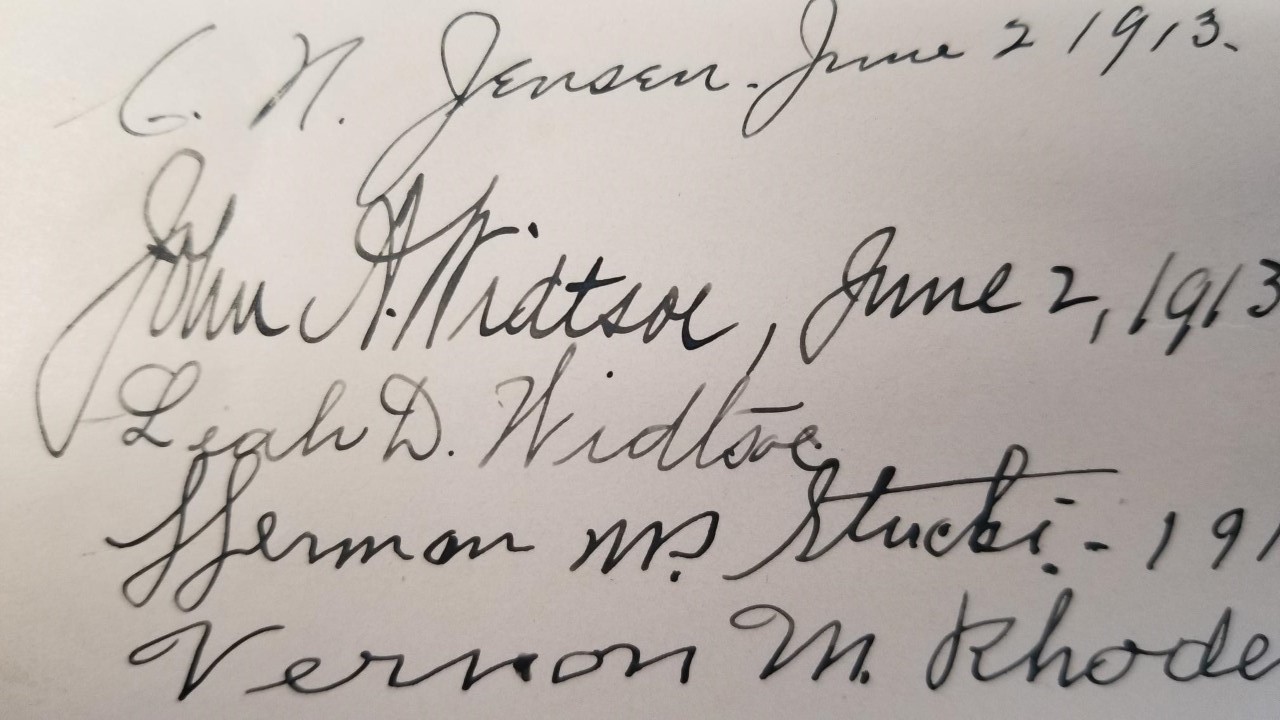 C. N. Jensen. June 2 1913.
John A. Widtsoe, June 2, 1913
Leah D. Widtsoe.
Herman M. Stucki - 191
Vernon M. Rhode